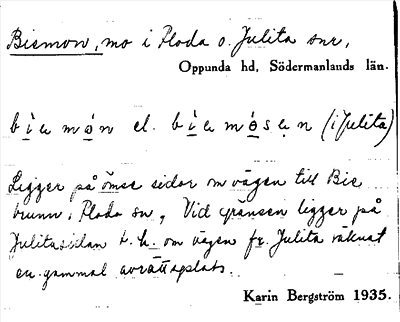 Biemon, mo i Floda o. Julita snr,
Oppunda hd, Södermanlands län.
bìe mòn el. bìe mòsạn (i Julita)
Ligger på ömse sidor om vägen till Bie
brunn i Floda sn. Vid gränsen ligger på
Julitasidan t. h. om vägen fr. Julita räknat
en gammal avrättsplats.
Karin Bergström 1935.